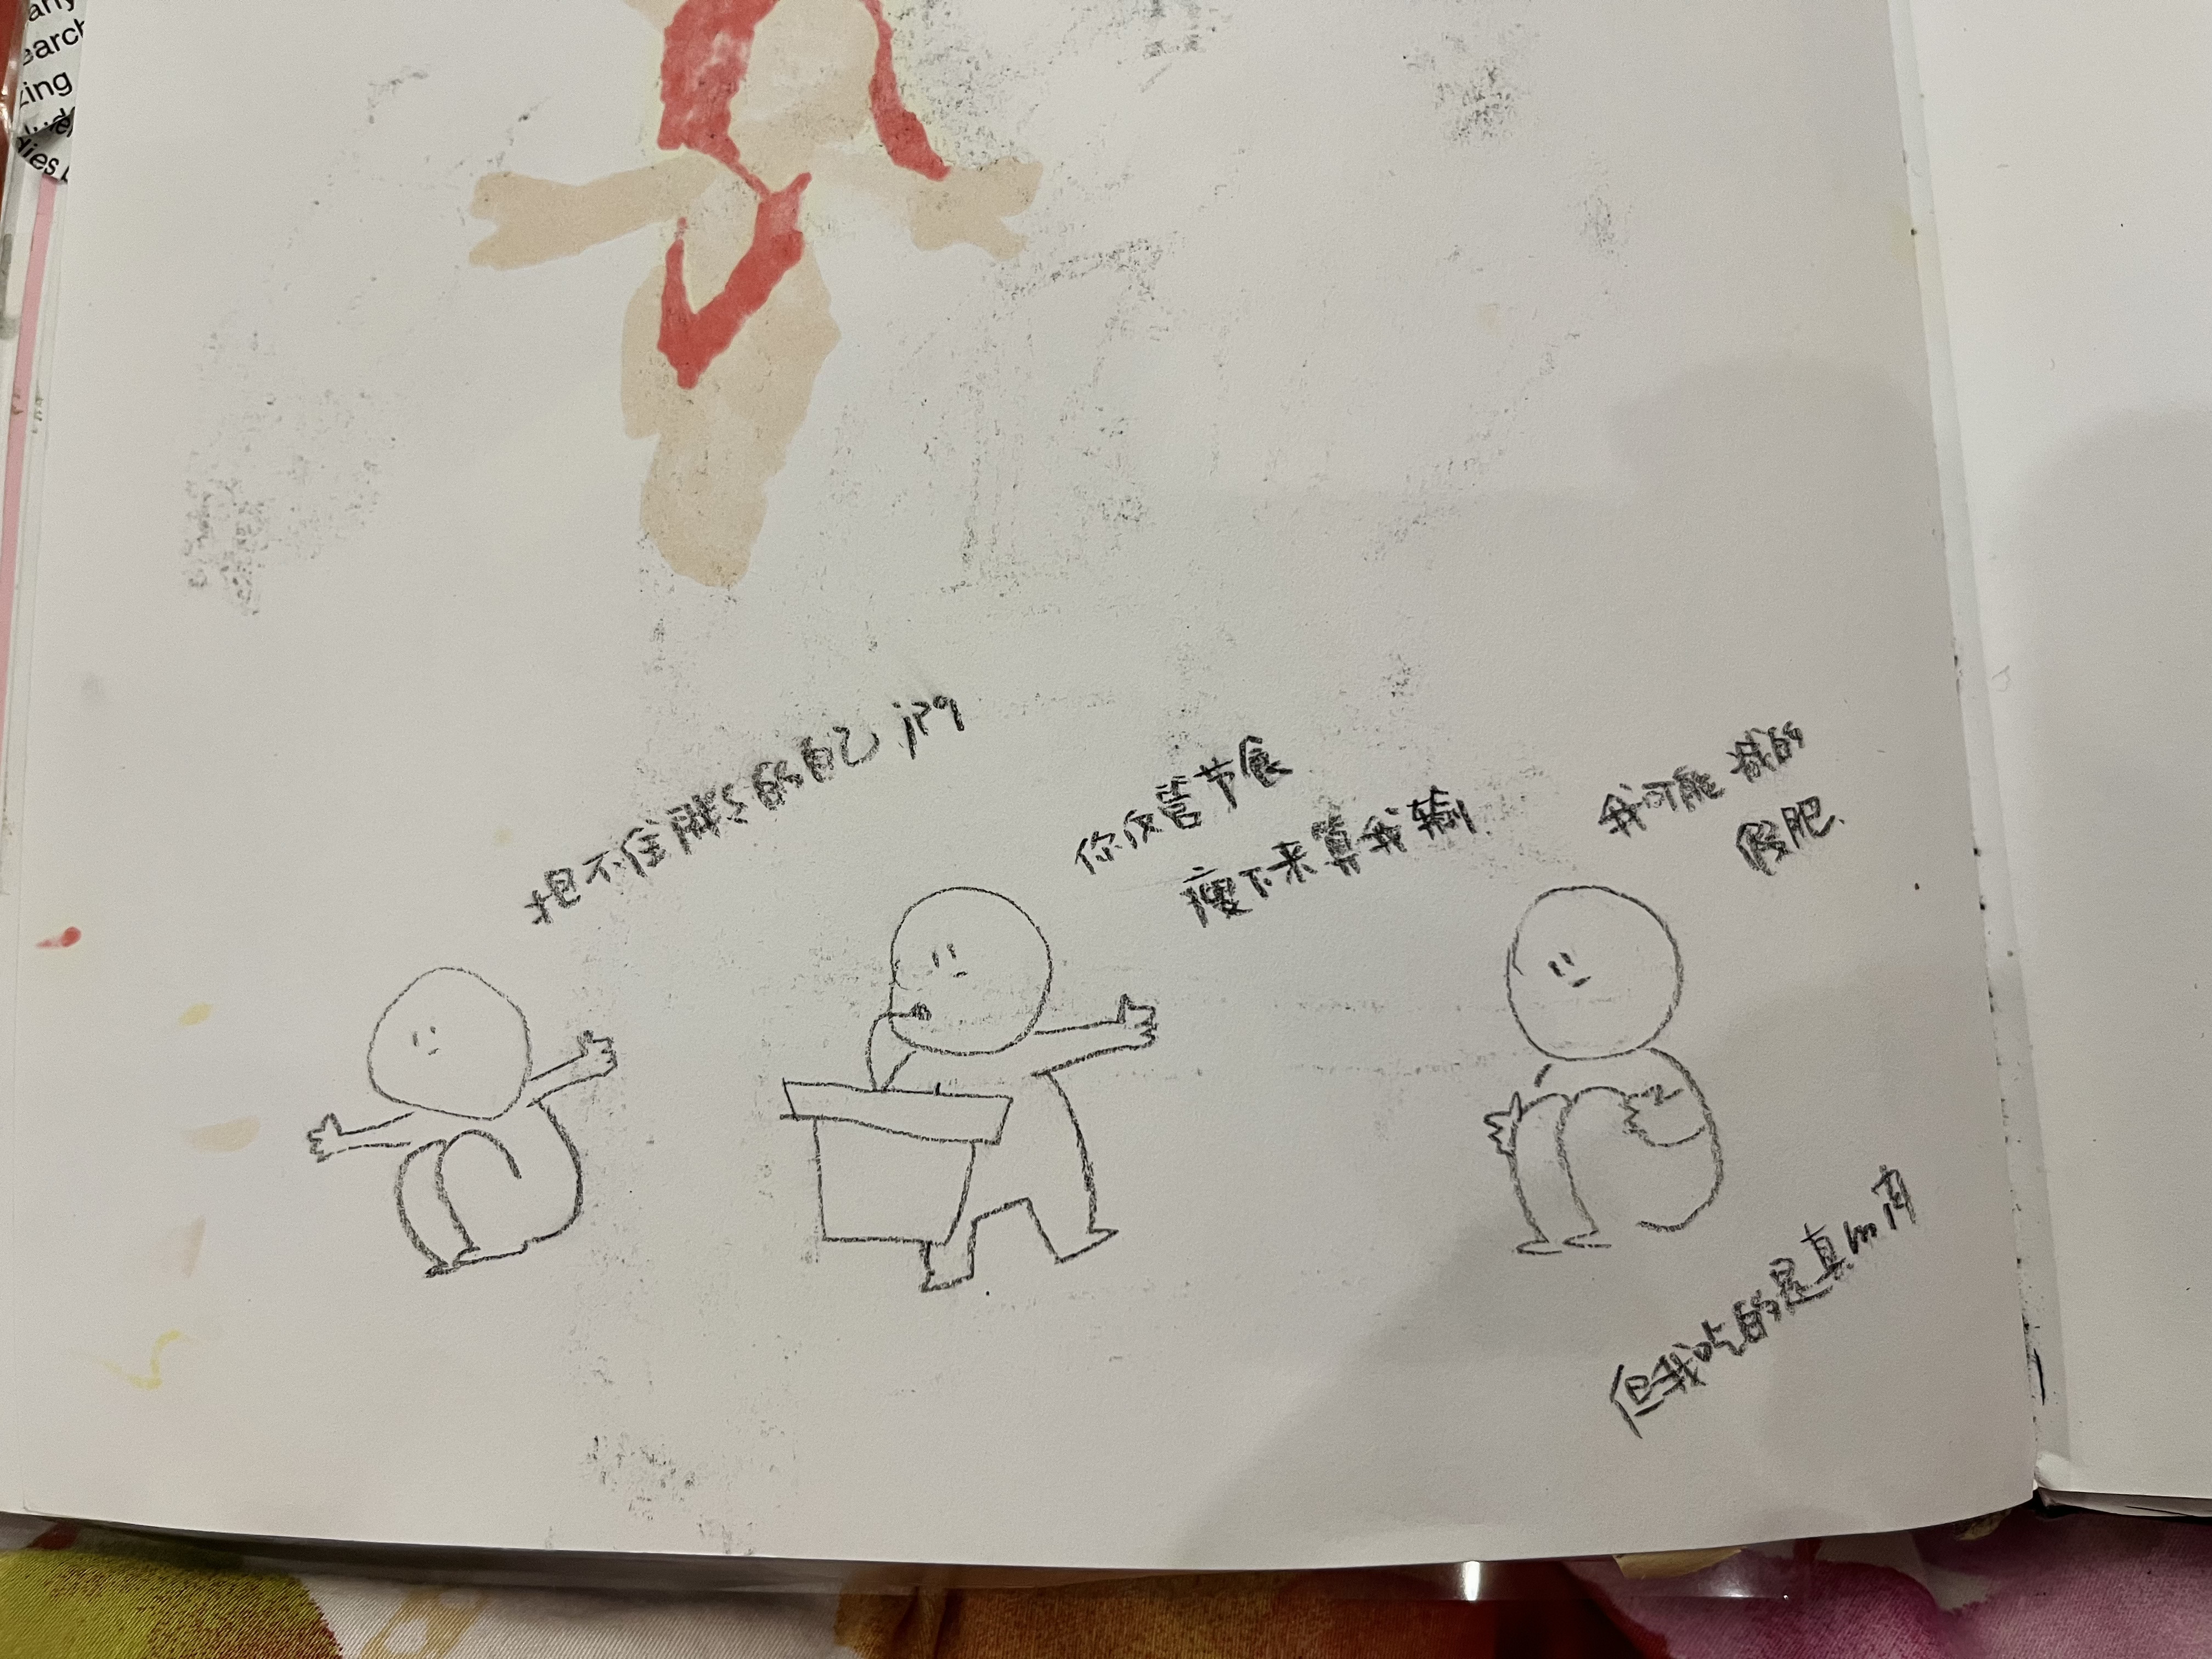 any
earch
zing
dies
抱不住胖的自己 jpg
你仅管节食
瘦下来算我输
我可能减的
假肥.
但我吃的是真的肉